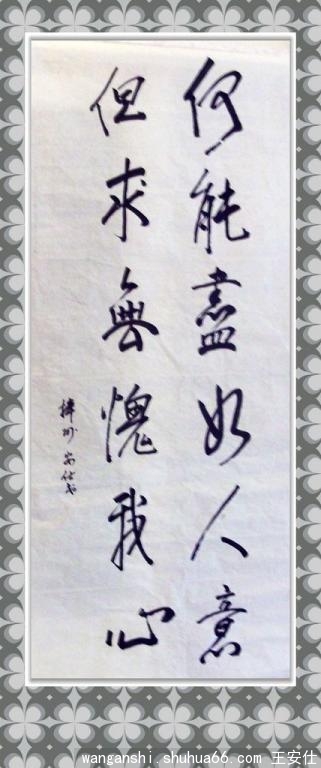 何能盡如人意
但求無愧我心
安仕书
wanganshi.shuhua66.com 王安仕